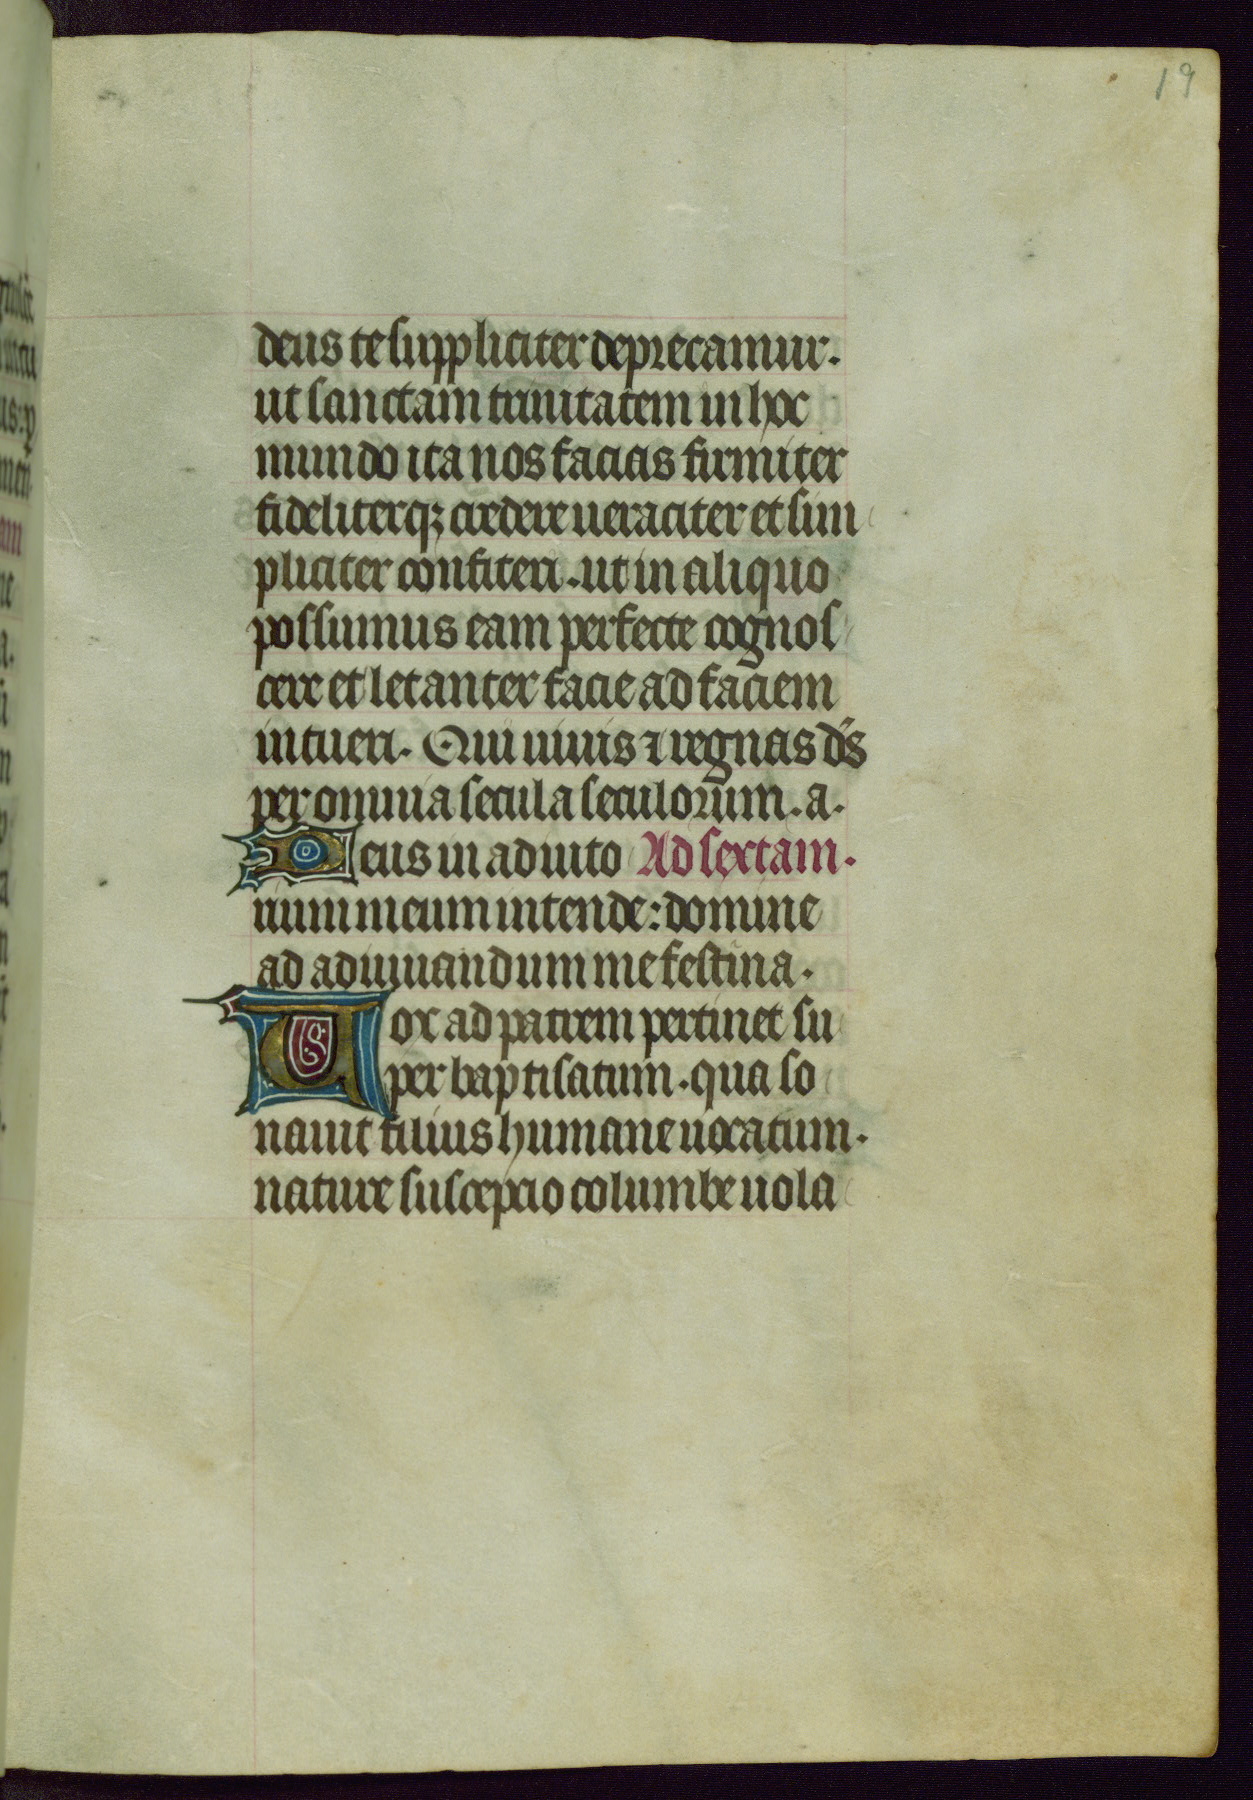 19
deus te suppliciter deprecamur.
ut sanctam trinitatem in hoc
mundo ita nos facias firmiter
fideliterq; credere ueraciter et sim
pliciter confiteri. ut in aliquo
possumus eam perfecte cognos
cere et letanter facie ad faciem
intueri. Qui uiuis ⁊ regnas d̄s
per omnia secula seculorum. a.
Deus in adiuto Ad sextam.
rium meum intende: domine
ad adiuuandum me festina.
Uox ad patrem pertinet su
per baptisatum. qua so
nauit filius humane uocatum.
nature suscepcio columbe uola